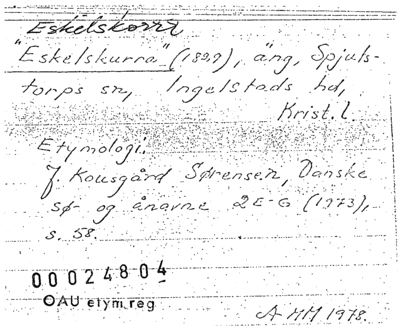 Eskelskorr
"Eskelskurra" (1829), äng, Spjuls-
torps sn, Ingelstads hd,
Krist. l.
Etymologi:
J. Kousgård Sørensen, Danske
sø- og ånavne 2 E-G (1973),
s. 58.
00024804
OAU etym reg
A MM 1978.